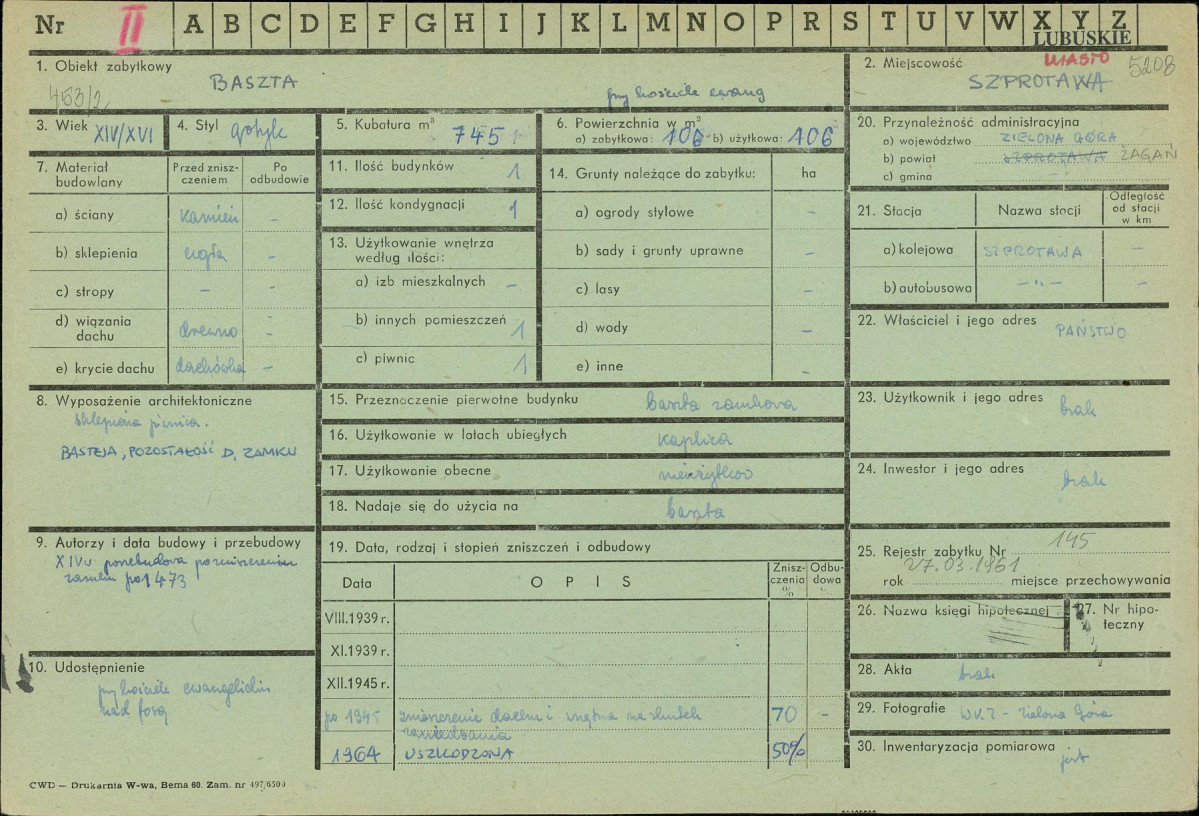 Nr II A B C D E F G H I J K L M N O P R S T U V W X Y Z
LUBUSKIE
1. Obiekt zabytkowy
BASZTA
przy kościele ewang
453/2
2. Miejscowość
MIASTO
5208
SZPROTAWA
3. Wiek XIV/XVI
4. Styl gotyk
5. Kubatura m³ 745
6. Powierzchnia w m²
a) zabytkowa: 106 b) użytkowa: 106
20. Przynależność administracyjna
a) województwo ZIELONA GÓRA
b) powiat SZPROTAWA ŻAGAŃ
c) gmina –
7. Materiał budowlany
Przed znisz-
czeniem
Po
odbudowie
a) ściany kamień
b) sklepienia cegła –
c) stropy –
d) wiązania
dachu drewno –
e) krycie dachu dachówka –
11. Ilość budynków 1
12. Ilość kondygnacji 1
13. Użytkowanie wnętrza
według ilości:
a) izb mieszkalnych –
b) innych pomieszczeń 1
c) piwnic 1
14. Grunty należące do zabytku: ha
a) ogrody stylowe –
b) sady i grunty uprawne –
c) lasy –
d) wody –
e) inne –
21. Stacja
Nazwa stacji
Odległość
od stacji
w km
a) kolejowa SZPROTAWA –
b) autobusowa –"– –
22. Właściciel i jego adres PAŃSTWO
8. Wyposażenie architektoniczne
sklepiona piwnica.
BASTEJA, POZOSTAŁOŚĆ D. ZAMKU
15. Przeznaczenie pierwotne budynku baszta zamkowa
16. Użytkowanie w latach ubiegłych kaplica
17. Użytkowanie obecne nieużytkow
18. Nadaje się do użycia na baszta
23. Użytkownik i jego adres brak
24. Inwestor i jego adres brak
9. Autorzy i data budowy i przebudowy
XIVw przebudowa po zniszczeniu
zamku po 1473
19. Data, rodzaj i stopień zniszczeń i odbudowy
Data
OPIS
Znisz-
czenia
%
Odbu-
dowa
%
VIII.1939 r.
XI.1939 r.
XII.1945 r.
po 1945 zniszczenie dachu i wnętrza na skutek
zaniedbania 70 –
1964 USZKODZONA 50%
25. Rejestr zabytku Nr 145
27.03.1961
rok miejsce przechowywania
26. Nazwa księgi hipotecznej
27. Nr hipo-
teczny
10. Udostępnienie
przy kościele ewangelickim
nad fosą
28. Akta brak
29. Fotografie WKZ – Zielona Góra
30. Inwentaryzacja pomiarowa jest
CWD — Drukarnia W-wa, Bema 60. Zam. nr 497/6500